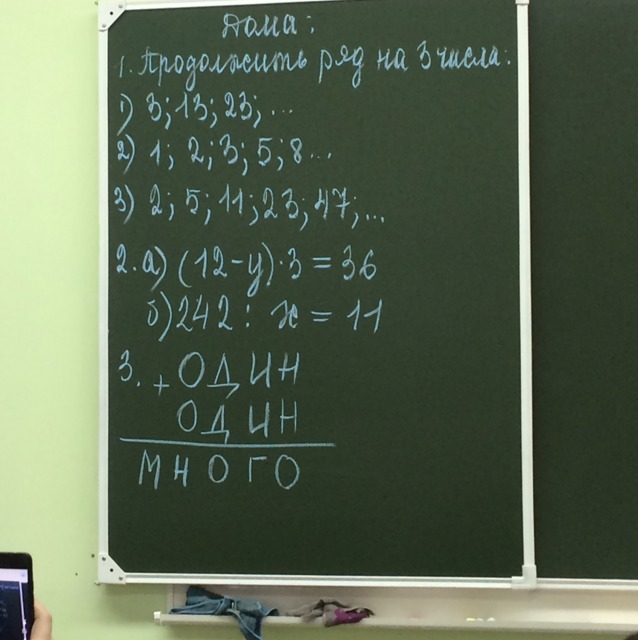 Дома:
1. Продолжить ряд на 3 числа:
1) 3; 13; 23; ...
2) 1; 2; 3; 5; 8...
3) 2; 5; 11; 23; 47; ...
2. а) (12-у)·3 = 36
б) 242 : х = 11
3. + ОДИН
ОДИН
МНОГО